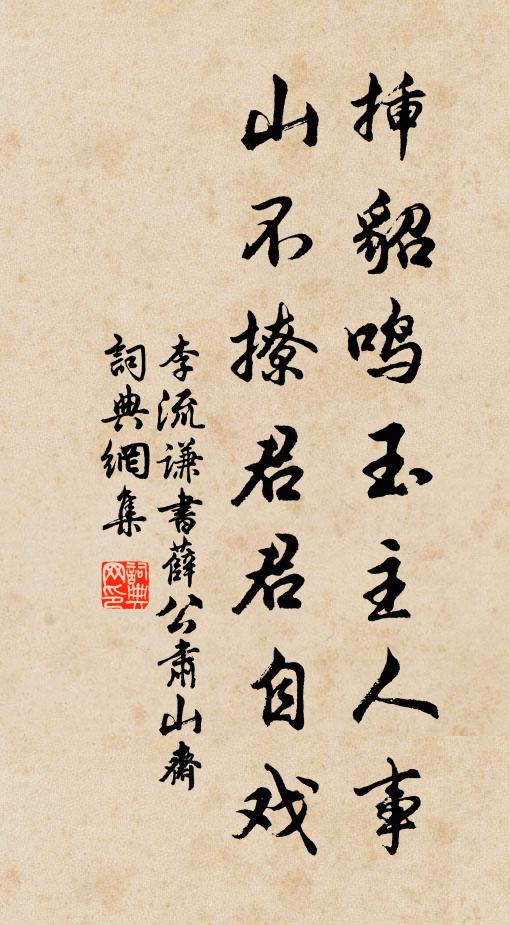 挿貂鸣玉主人事
山不撩君君自戏
李流谦書薛公肃山齋
詞典網集
詞典网印